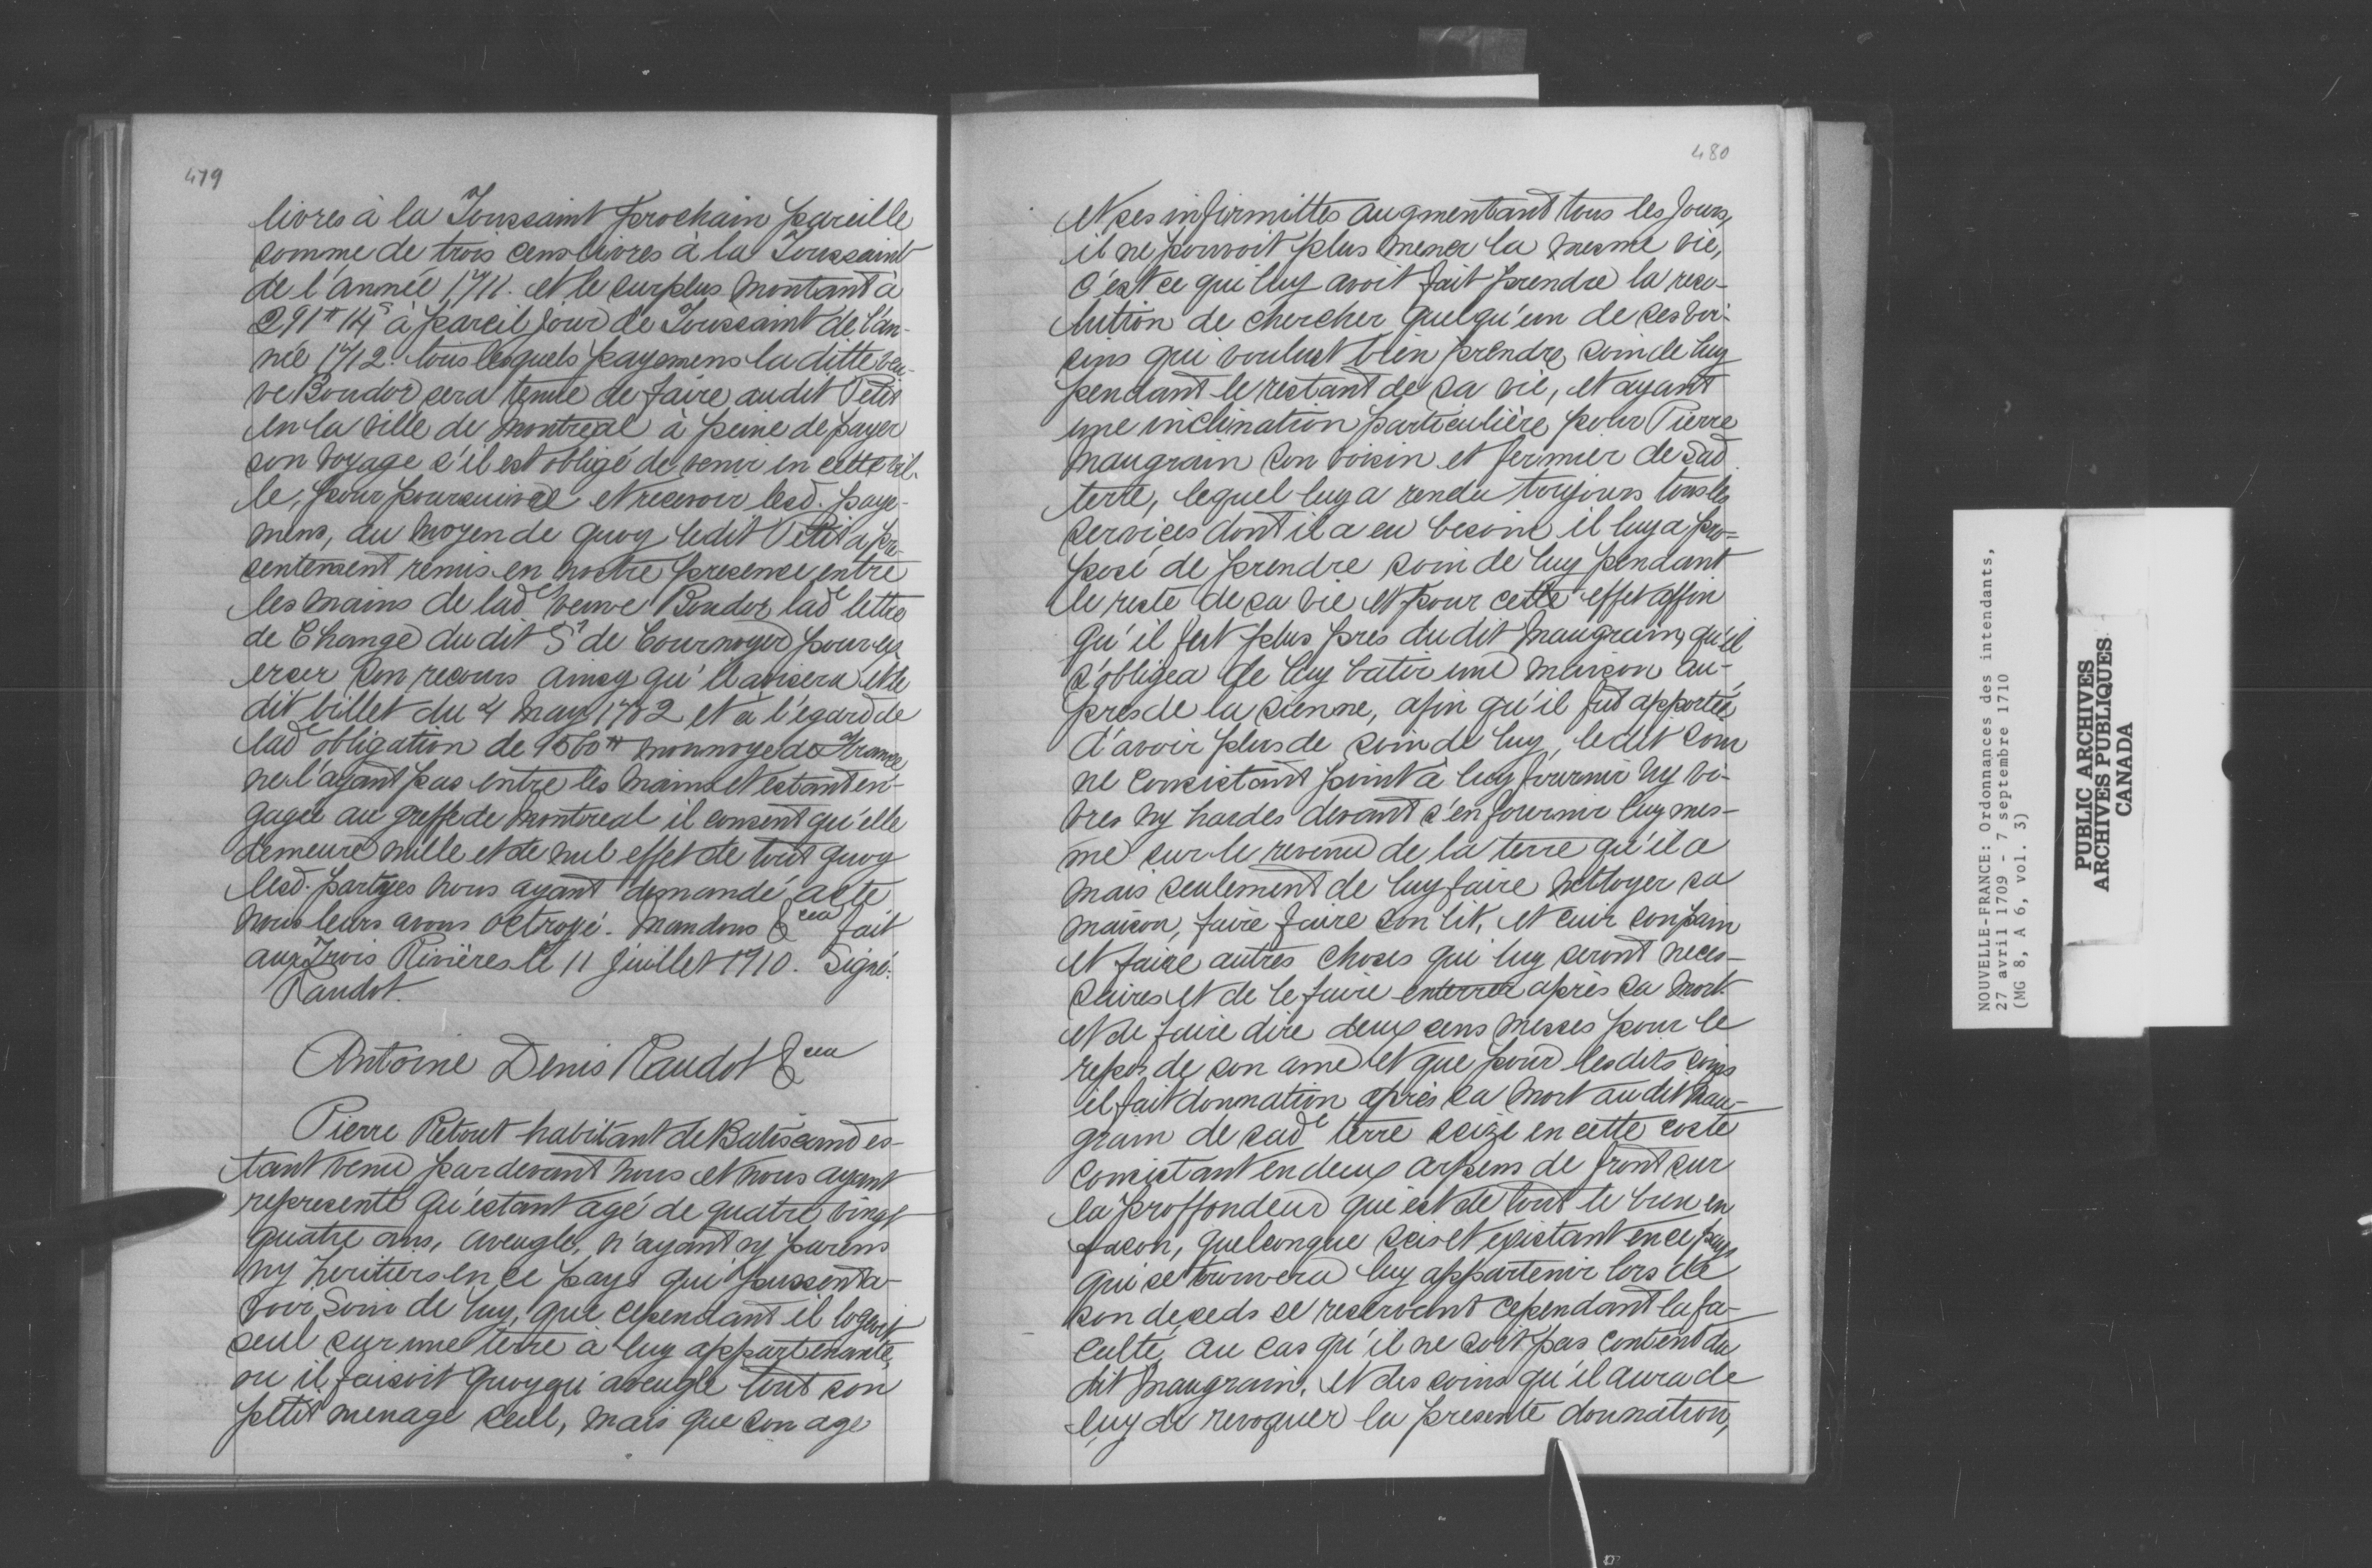 479
livres à la Toussaint prochain pareille
somme de trois cens livres à la Toussaint
de l'année 1711. et le surplus montant à
291ᵗᵗ 14ˢ à pareil jour de Toussaint de l'an-
née 1712. tous lesquels payemens la ditte veu-
ve Boudor sera tenue de faire audit Petit
en la ville de Montreal à peine de payer
son voyage s'il est obligé de venir en cette vil-
le, pour poursuivre et recevoir lesd. paye-
mens, au moyen de quoy ledit Petit a pre-
sentement remis en nostre presence entre
les mains de ladᵉ veuve Boudor ladᵉ lettre
de Change dudit Sʳ de Cournoyer pour ex-
ercer son recours ainsy qu'il avisera et le
dit billet du 4 may 1702 et à l'égard de
ladᵉ obligation de 1560ᵗᵗ monnoye de France
ne l'ayant pas entre les mains et estant en-
gagée au greffe de Montreal il consent qu'elle
demeure nulle et de nul effet de tout quoy
lesd. partyes nous ayant demandé acte
nous leurs avons octroyé. Mandons &cea fait
aux Trois Rivières le 11 Juillet 1710. Signé:
Raudot.
Antoine Denis Raudot &cea
Pierre Retout habitant de Batiscand es-
tant venu pardevant nous et nous ayant
representé qu'estant agé de quatre vingt
quatre ans, aveugle, n'ayant ny parens
ny heritiers en ce pays qui pussent a-
voir soin de luy, que cependant il logeoit
seul sur une terre à luy appartenante,
ou il faisoit quoyqu'aveugle tout son
petit menage seul, mais que son age
480
et ses infirmittes augmentant tous les jours,
il ne pouvoit plus mener la mesme vie,
c'est ce qui luy avoit fait prendre la reso-
lution de chercher quelqu'un de ses voi-
sins qui voulust bien prendre soin de luy
pendant le restant de sa vie, et ayant
une inclination particulière pour Pierre
Maugrain son voisin et fermier de sad.
terre, lequel luy a rendu toujours tous les
services dont il a eu besoin il luy a pro=
posé de prendre soin de luy pendant
le reste de sa vie et pour cette effet affin
qu'il fut plus pres du dit Maugrain, qu'il
s'obligea de luy batir une maison au-
pres de la sienne, afin qu'il fut apportée
d'avoir plus de soin de luy, ledit soin
ne consistant point à luy fournir ny vi-
vres ny hardes devant s'en fournir luy mes-
me sur le revenu de la terre qu'il a
mais seulement de luy faire nettoyer sa
maison, faire faire son lit, et cuir son pain
et faire autres choses qui luy seront neces-
saires et de le faire enterrer après sa mort.
et de faire dire deux cens messes pour le
repos de son ame et que pour lesdits soins
il fait donnation après sa mort audit Mau-
grain de sadᵉ terre seize en cette coste
consistant en deux arpens de front sur
la proffondeur que est de tout le bien en
facon, quelconque seis et existant en ce pays
qui se trouvera luy appartenir lors de
son deseds se reservant cependant la fa-
culté au cas qu'il ne soit pas content du
dit Maugrain, et des soins qu'il aura de
luy de revoquer la presente donnation,
NOUVELLE-FRANCE: Ordonnances des intendants,
27 avril 1709 - 7 septembre 1710
(MG 8, A 6, vol. 3)
PUBLIC ARCHIVES
ARCHIVES PUBLIQUES
CANADA